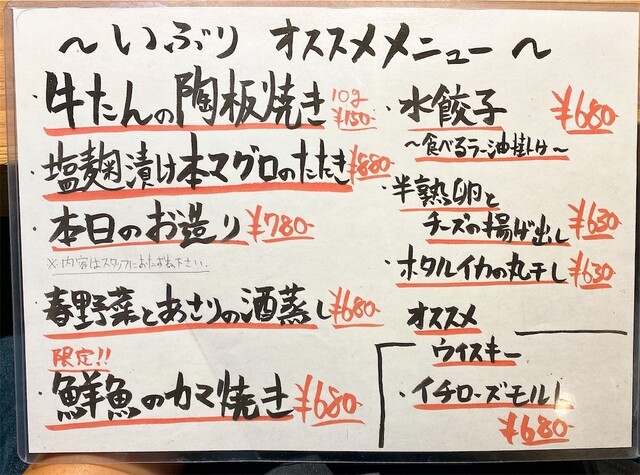 ～いぶり オススメメニュー～
・牛たんの陶板焼き 10g ¥150-
・塩麹漬け本マグロのたたき ¥880-
・本日のお造り ¥780-
※内容はスタッフにおたずね下さい。
・春野菜とあさりの酒蒸し ¥680-
限定!!
・鮮魚のカマ焼き ¥680-
・水餃子 ¥680-
～食べるラー油掛け～
・半熟卵と
チーズの揚げ出し ¥630-
・ホタルイカの丸干し ¥630-
オススメ
ウイスキー
・イチローズモルト
¥680-